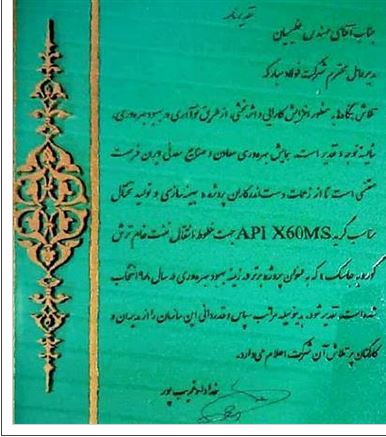 تقدیرنامه
جناب آقای مهندس عظیمیان
مدیرعامل محترم شرکت فولاد مبارکه
تلاش بنگاه‌ها به منظور افزایش کارایی و اثربخشی، از طریق نوآوری در بهبود بهره‌وری،
شایسته توجه و تقدیر است. همایش بهره‌وری معادن و صنایع معدنی ایران فرصت
مغتنمی است تا از زحمات دست‌اندرکاران پروژه « بهینه‌سازی و تولید تختال
مناسب گرید API X60MS جهت خطوط انتقال نفت خام ترش
گوره به جاسک » که به عنوان پروژه برتر در زمینه بهبود بهره‌وری در سال ۹۸ انتخاب
شده است، تقدیر شود. بدینوسیله مراتب سپاس و قدردانی این سازمان را از مدیران و
کارکنان پر تلاش آن شرکت اعلام می‌دارد.
خداداد غریب پور